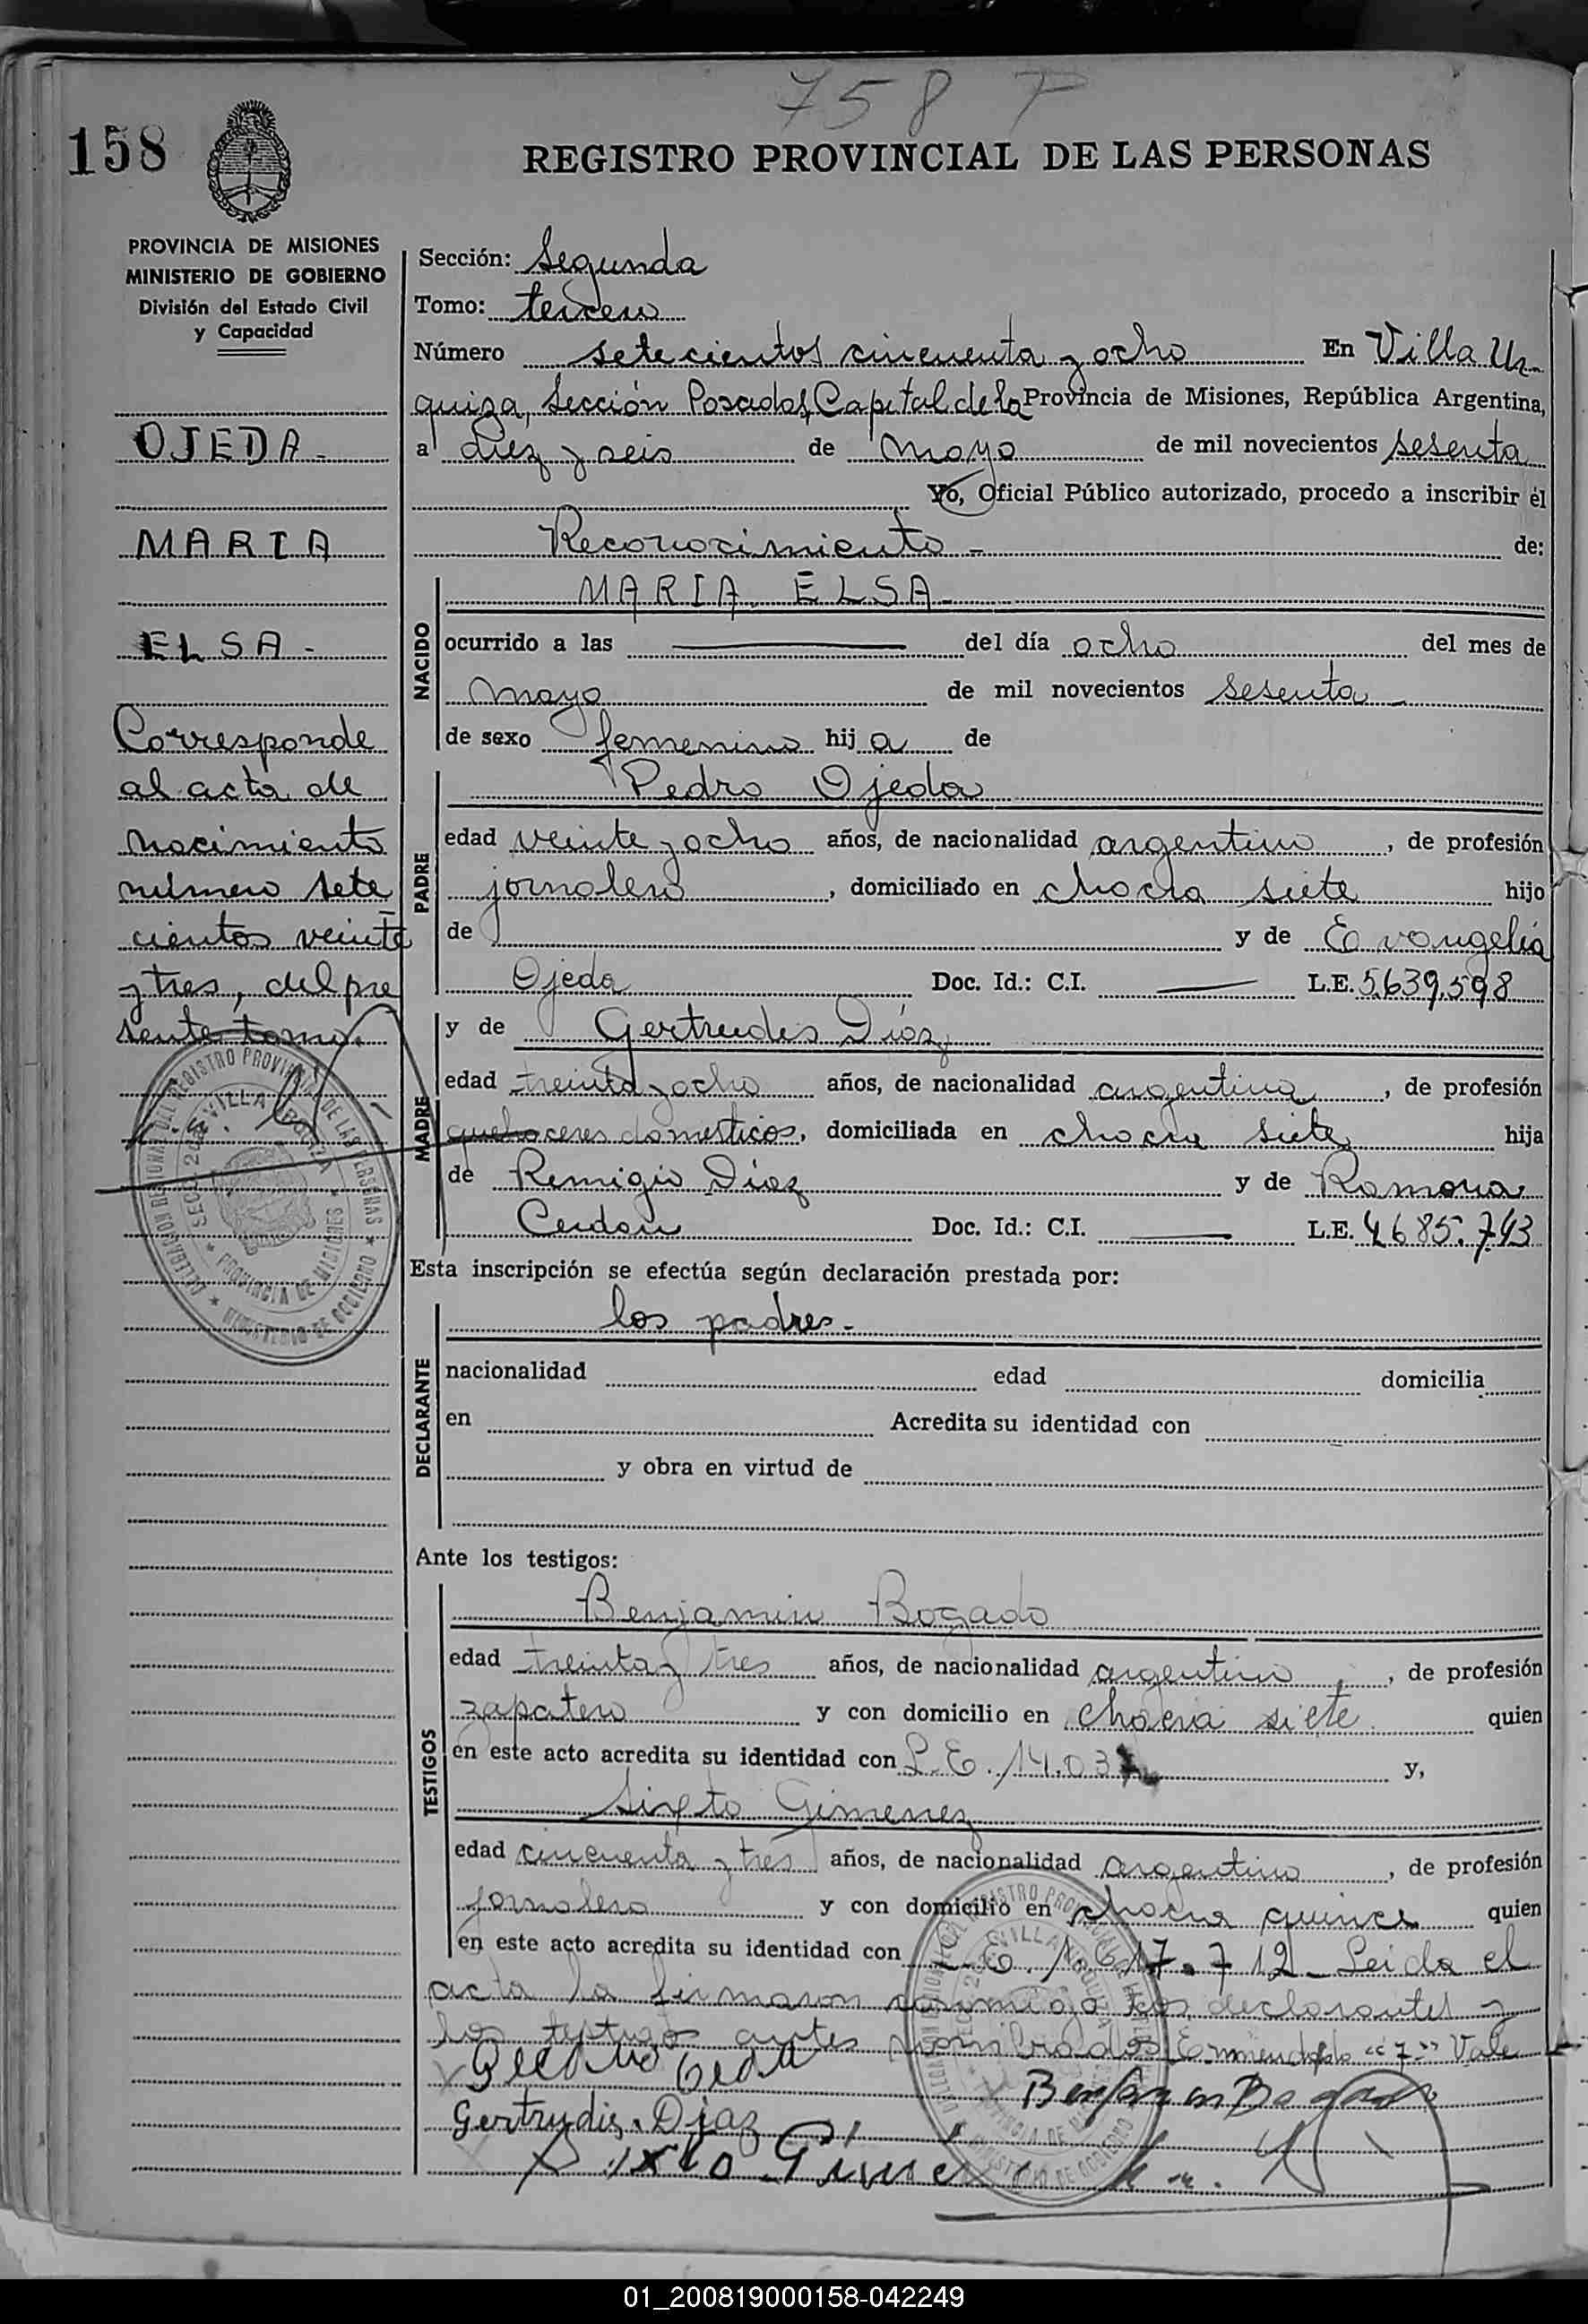 758 P
158
REGISTRO PROVINCIAL DE LAS PERSONAS
PROVINCIA DE MISIONES
MINISTERIO DE GOBIERNO
División del Estado Civil
y Capacidad
OJEDA -
MARIA
ELSA -
Corresponde
al acta de
nacimiento
número sete
cientos veinte
y tres, del pre
sente tomo.
Sección: Segunda
Tomo: tercero
Número setecientos cincuenta y ocho En Villa Ur-
quiza, Sección Posadas, Capital de la Provincia de Misiones, República Argentina,
a diez y seis de mayo de mil novecientos sesenta
Yo, Oficial Público autorizado, procedo a inscribir el
Reconocimiento - de:
NACIDO
MARIA ELSA -
ocurrido a las del día ocho del mes de
mayo de mil novecientos sesenta -
de sexo femenino hij a de
PADRE
Pedro Ojeda
edad veinte y ocho años, de nacionalidad argentino, de profesión
jornalero, domiciliado en chacra siete hijo
de y de Evangelia
Ojeda Doc. Id.: C.I. — L.E. 5.639.598
MADRE
y de Gertrudis Díaz
edad treinta y ocho años, de nacionalidad argentina, de profesión
quehaceres domesticos, domiciliada en chacra siete hija
de Remigio Díaz y de Ramona
Doc. Id.: C.I. — L.E. 4685.743
Esta inscripción se efectúa según declaración prestada por:
DECLARANTE
los padres -
nacionalidad edad domicilia
en Acredita su identidad con
y obra en virtud de
Ante los testigos:
TESTIGOS
Benjamin Bogado
edad treinta y tres años, de nacionalidad argentino, de profesión
zapatero y con domicilio en chacra siete quien
en este acto acredita su identidad con L.E. y,
Sixto Gimenez
edad cincuenta y tres años, de nacionalidad argentino, de profesión
jornalero y con domicilio en chacra quince quien
en este acto acredita su identidad con L.E. 1.617.712 - Leida el
acta la firmaron conmigo los declarantes y
los testigos antes nombrados Enmendado "7" Vale
Benjamin Bogado
Gertrudis. Diaz
Sixto Gimenez
01_200819000158-042249